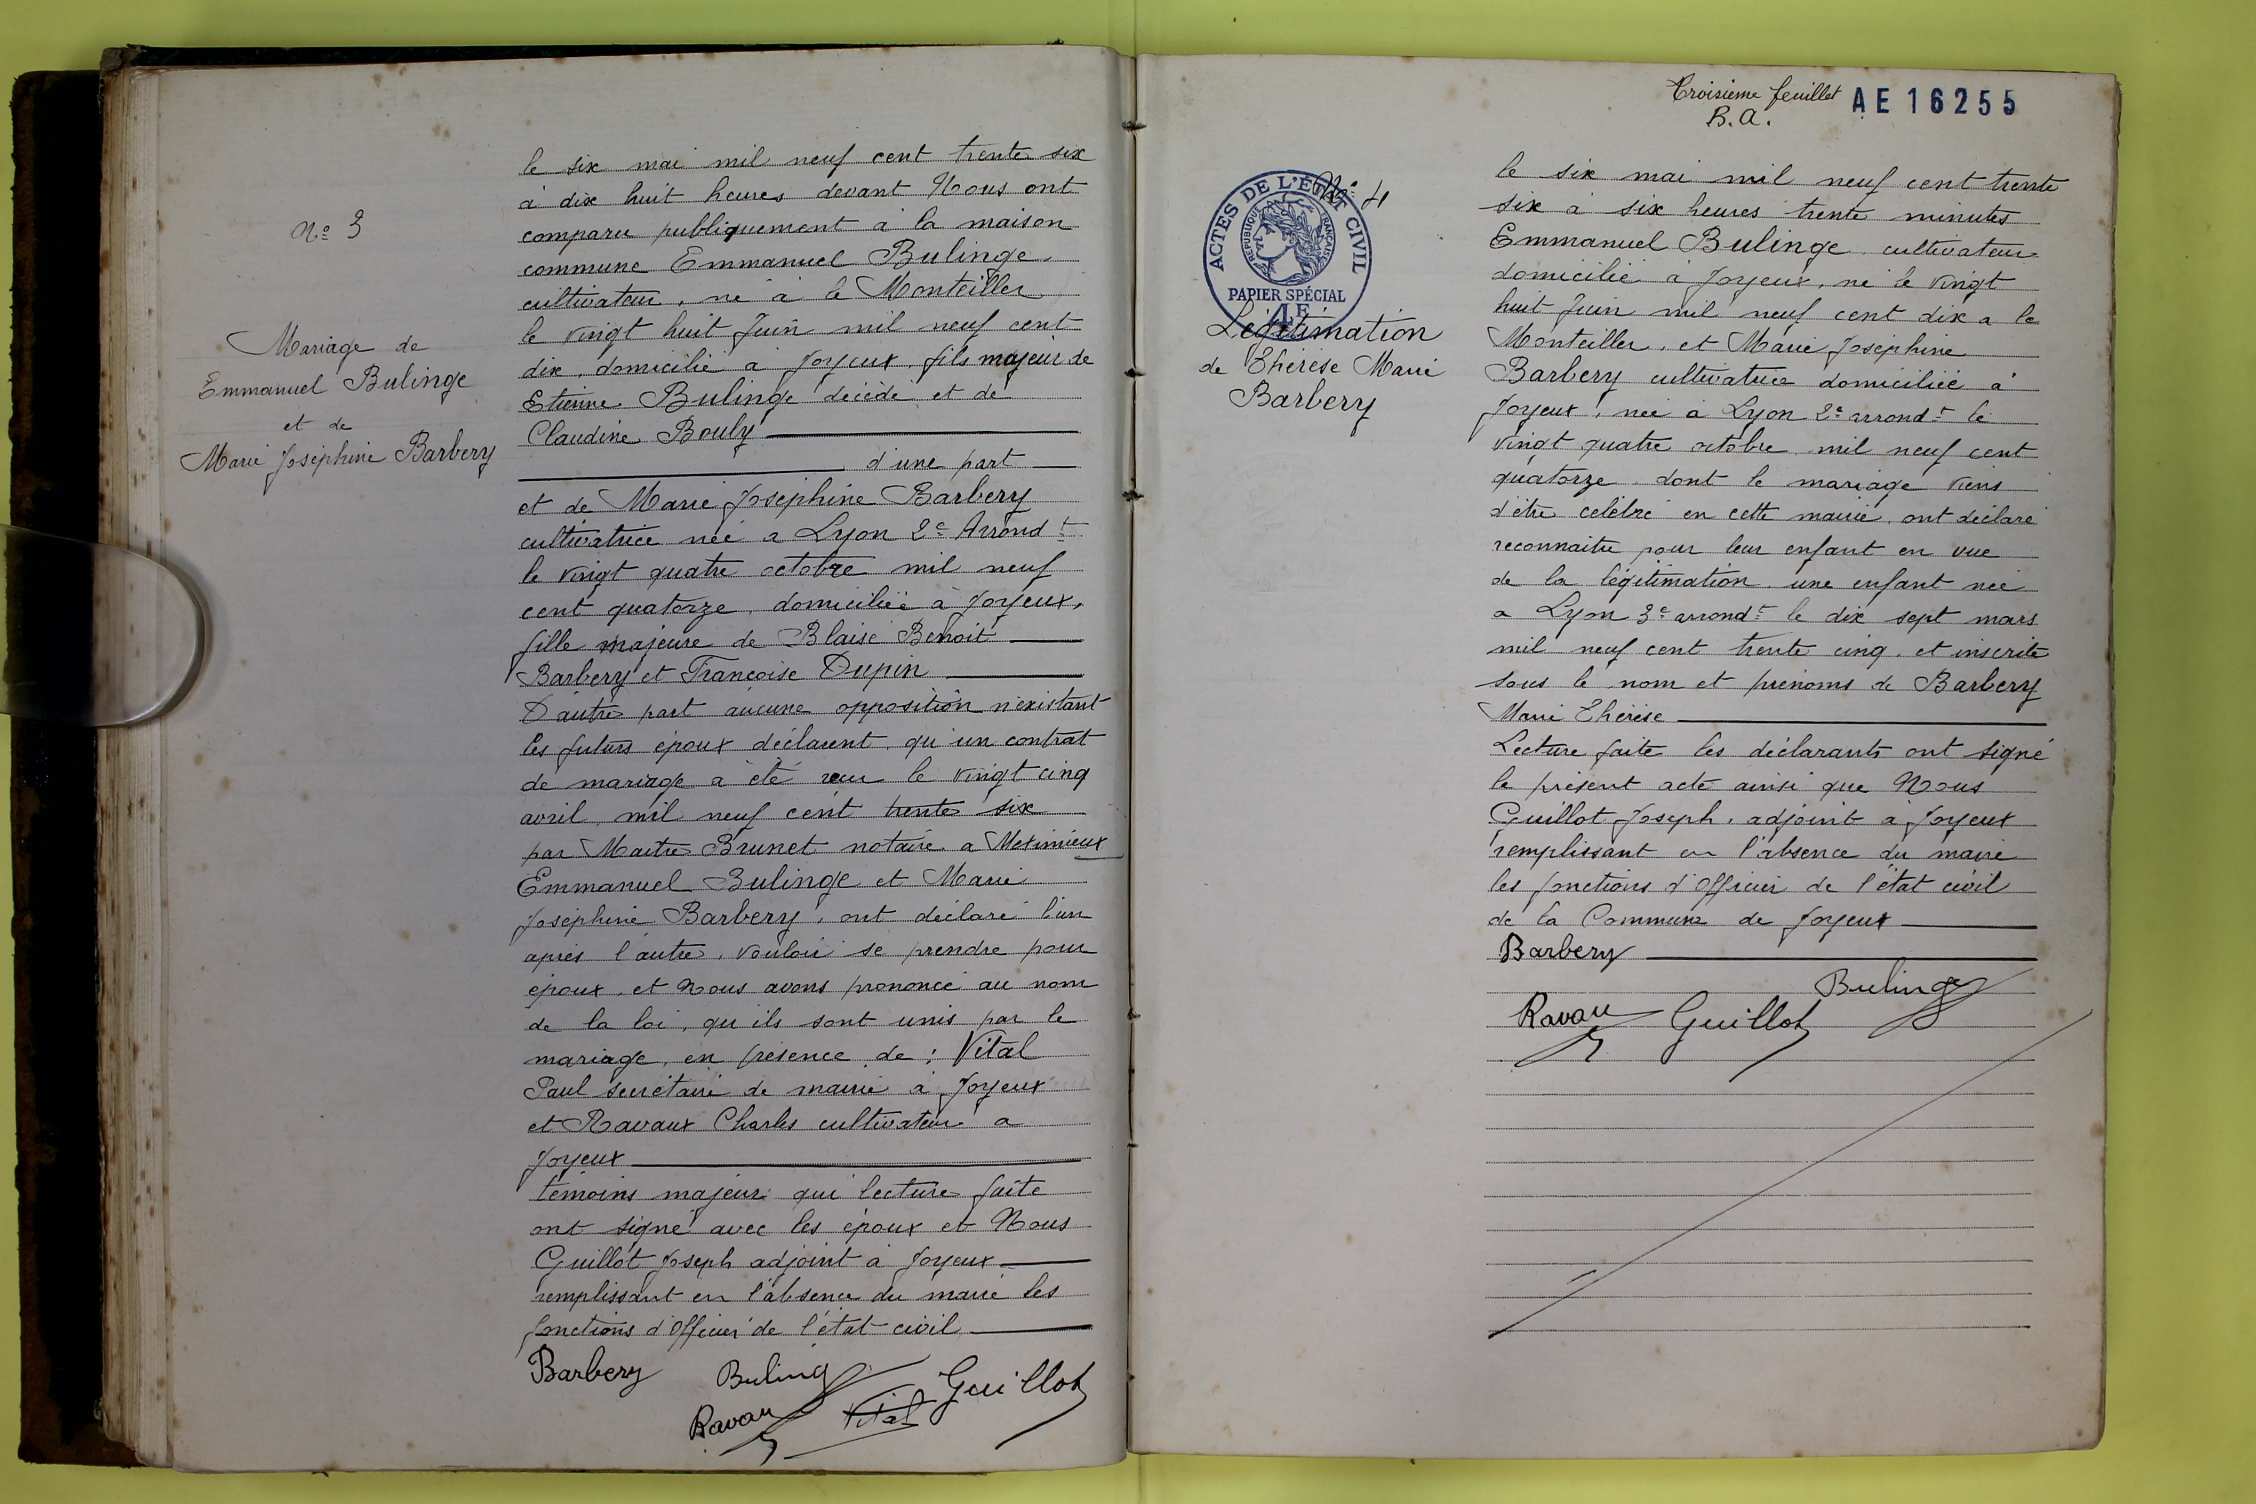 N° 3
Mariage de
Emmanuel Bulinge
et de
Marie Joséphine Barbery
le six mai mil neuf cent trente six
à dix huit heures devant Nous ont
comparu publiquement à la maison
commune Emmanuel Bulinge,
cultivateur, né à le Monteiller
le vingt huit Juin mil neuf cent
dix, domicilié à Joyeux, fils majeur de
Etienne Bulinge décédé et de
Claudine Bouly
d'une part
et de Marie Joséphine Barbery
cultivatrice née a Lyon 2e Arrondt
le vingt quatre octobre mil neuf
cent quatorze, domiciliée à Joyeux,
fille majeure de Blaise Benoit
Barbery et Françoise Dupin
D'autre part aucune opposition n'existant
les futurs époux déclarent qu'un contrat
de mariage a été reçu le vingt cinq
avril mil neuf cent trente six
par Maitre Brunet notaire a Meximieux
Emmanuel Bulinge et Marie
Joséphine Barbery, ont déclaré l'un
après l'autre, vouloir se prendre pour
époux et Nous avons prononcé au nom
de la loi, qu'ils sont unis par le
mariage, en présence de : Vital
Paul secrétaire de mairie à Joyeux
et Ravaux Charles cultivateur a
Joyeux
témoins majeurs qui lecture faite
ont signé avec les époux et Nous
Guillot Joseph adjoint à Joyeux
remplissant en l'absence du maire les
fonctions d'Officier de l'état civil
Barbery Bulinge Guillot
Ravau Vital
Troisième feuillet AE 16255
B.A.
N° 4
ACTES DE L'ÉTAT CIVIL
REPUBLIQUE FRANÇAISE
PAPIER SPÉCIAL
4F
Légitimation
de Thérèse Marie
Barbery
le six mai mil neuf cent trente
six à six heures trente minutes
Emmanuel Bulinge cultivateur
domicilié à Joyeux, né le vingt
huit Juin mil neuf cent dix a le
Monteiller, et Marie Joséphine
Barbery cultivatrice domiciliée à
Joyeux, née à Lyon 2e arrondt le
vingt quatre octobre mil neuf cent
quatorze dont le mariage viens
d'être célébré en cette mairie, ont déclaré
reconnaitre pour leur enfant en vue
de la légitimation une enfant née
a Lyon 3e arrondt le dix sept mars
mil neuf cent trente cinq, et inscrite
sous le nom et prénoms de Barbery
Marie Thérèse
Lecture faite les déclarants ont signé
le présent acte ainsi que Nous
Guillot Joseph, adjoint à Joyeux
remplissant en l'absence du maire
les fonctions d'Officier de l'état civil
de la Commune de Joyeux
Barbery
Bulinge
Ravau Guillot